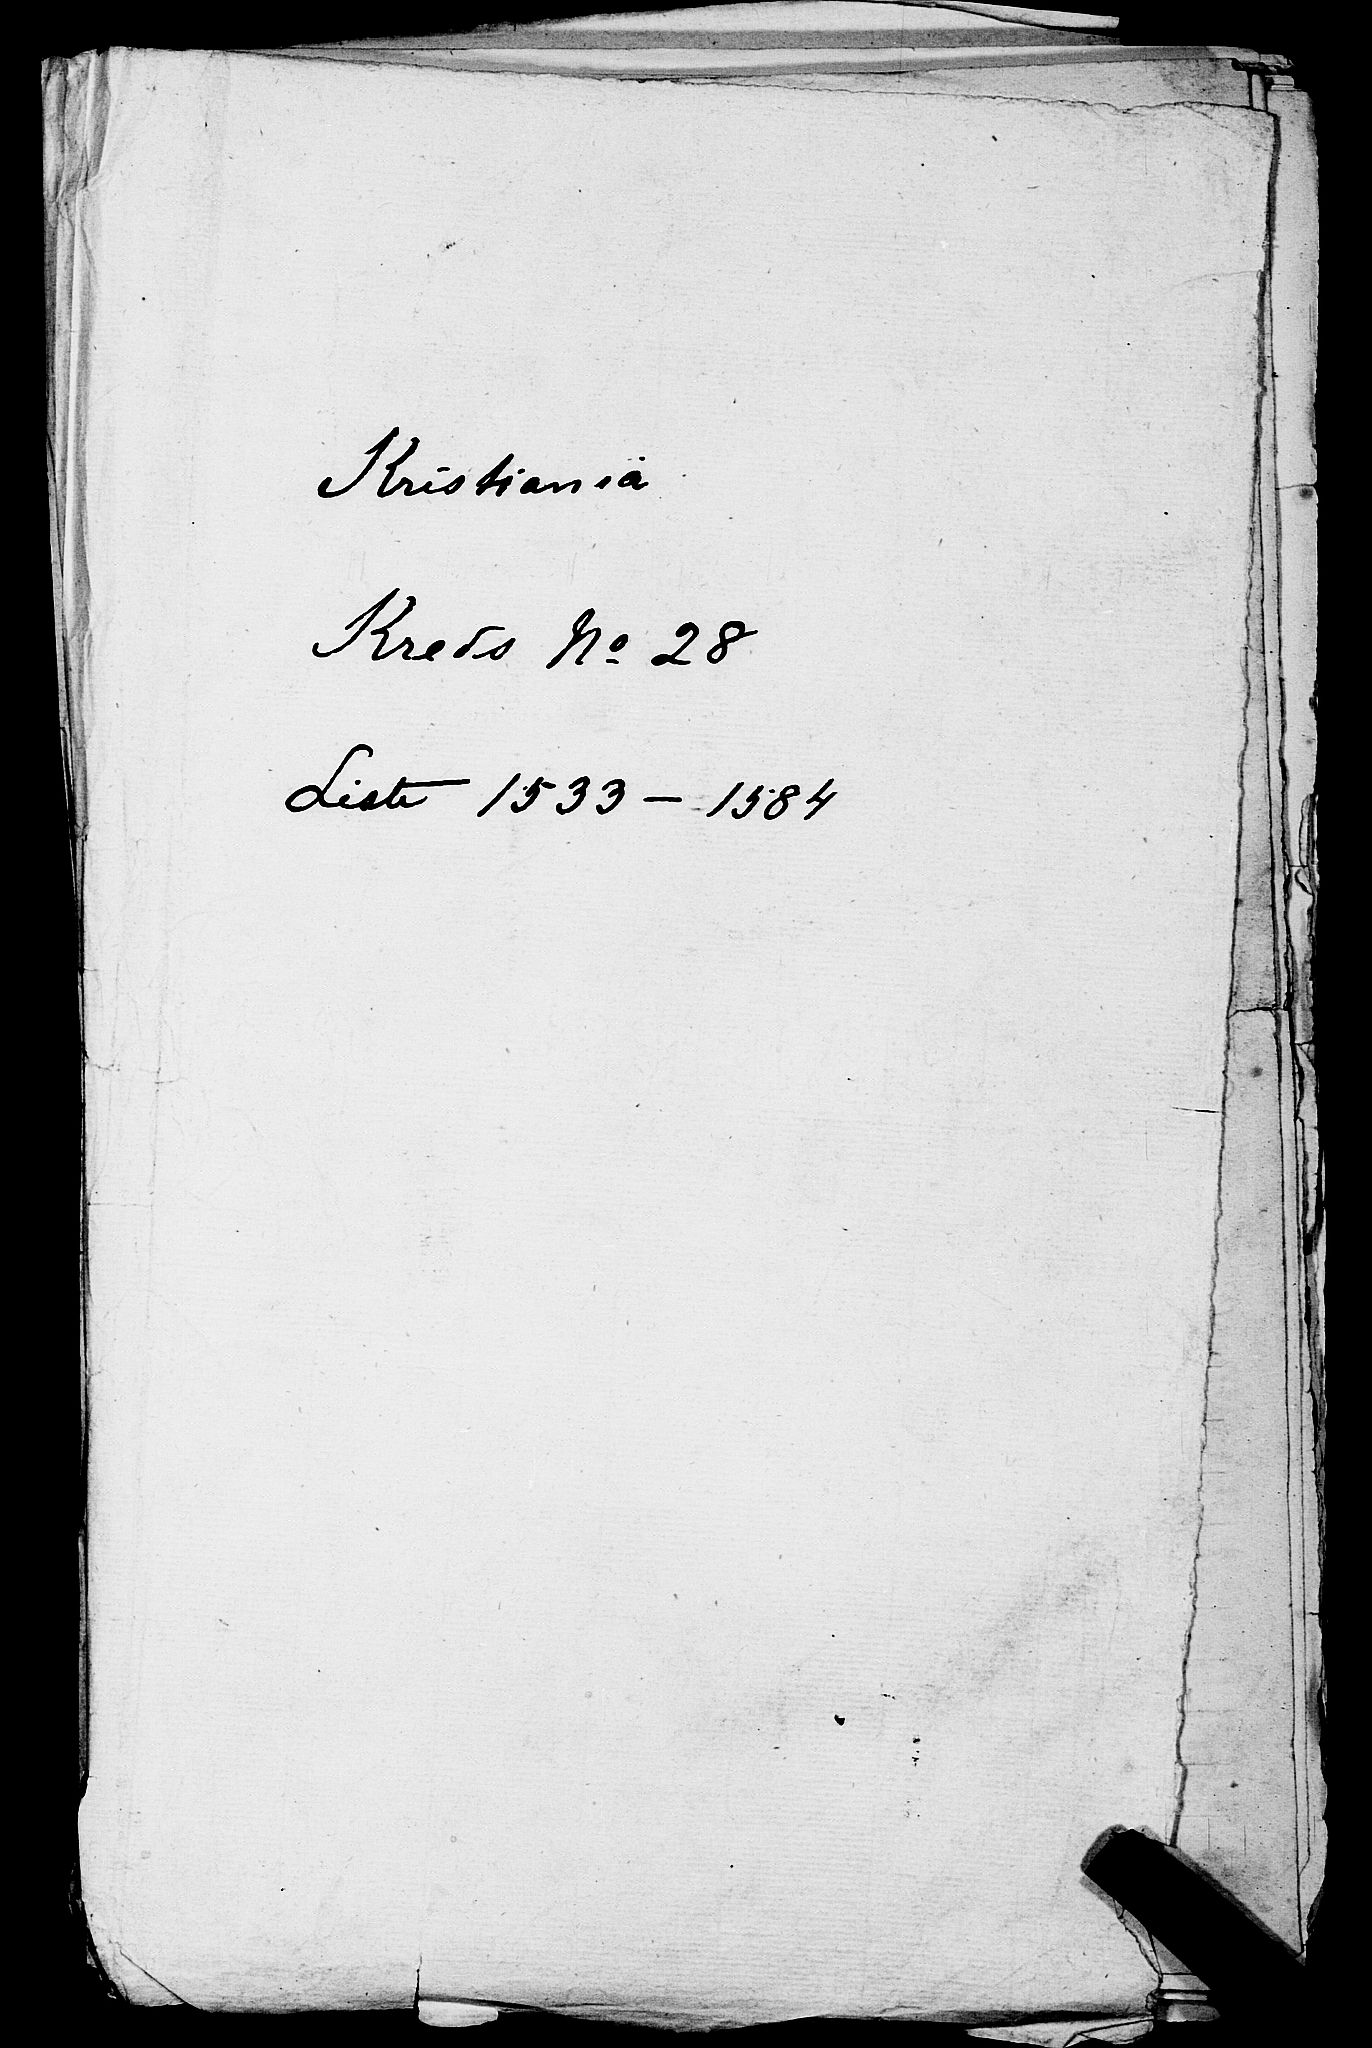 Kristiania
Kreds No 28
Liste 1533 - 1584